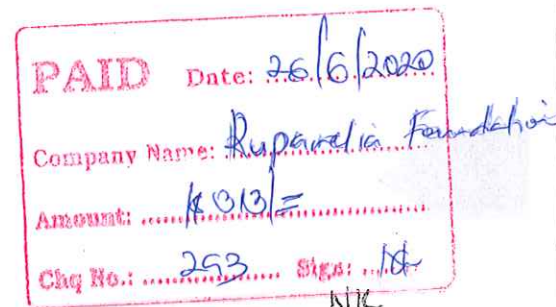 PAID Date: 26/6/2020
Company Name: Ruparelia Foundation
Amount: 313/=
Chq No.: 253 Sign: